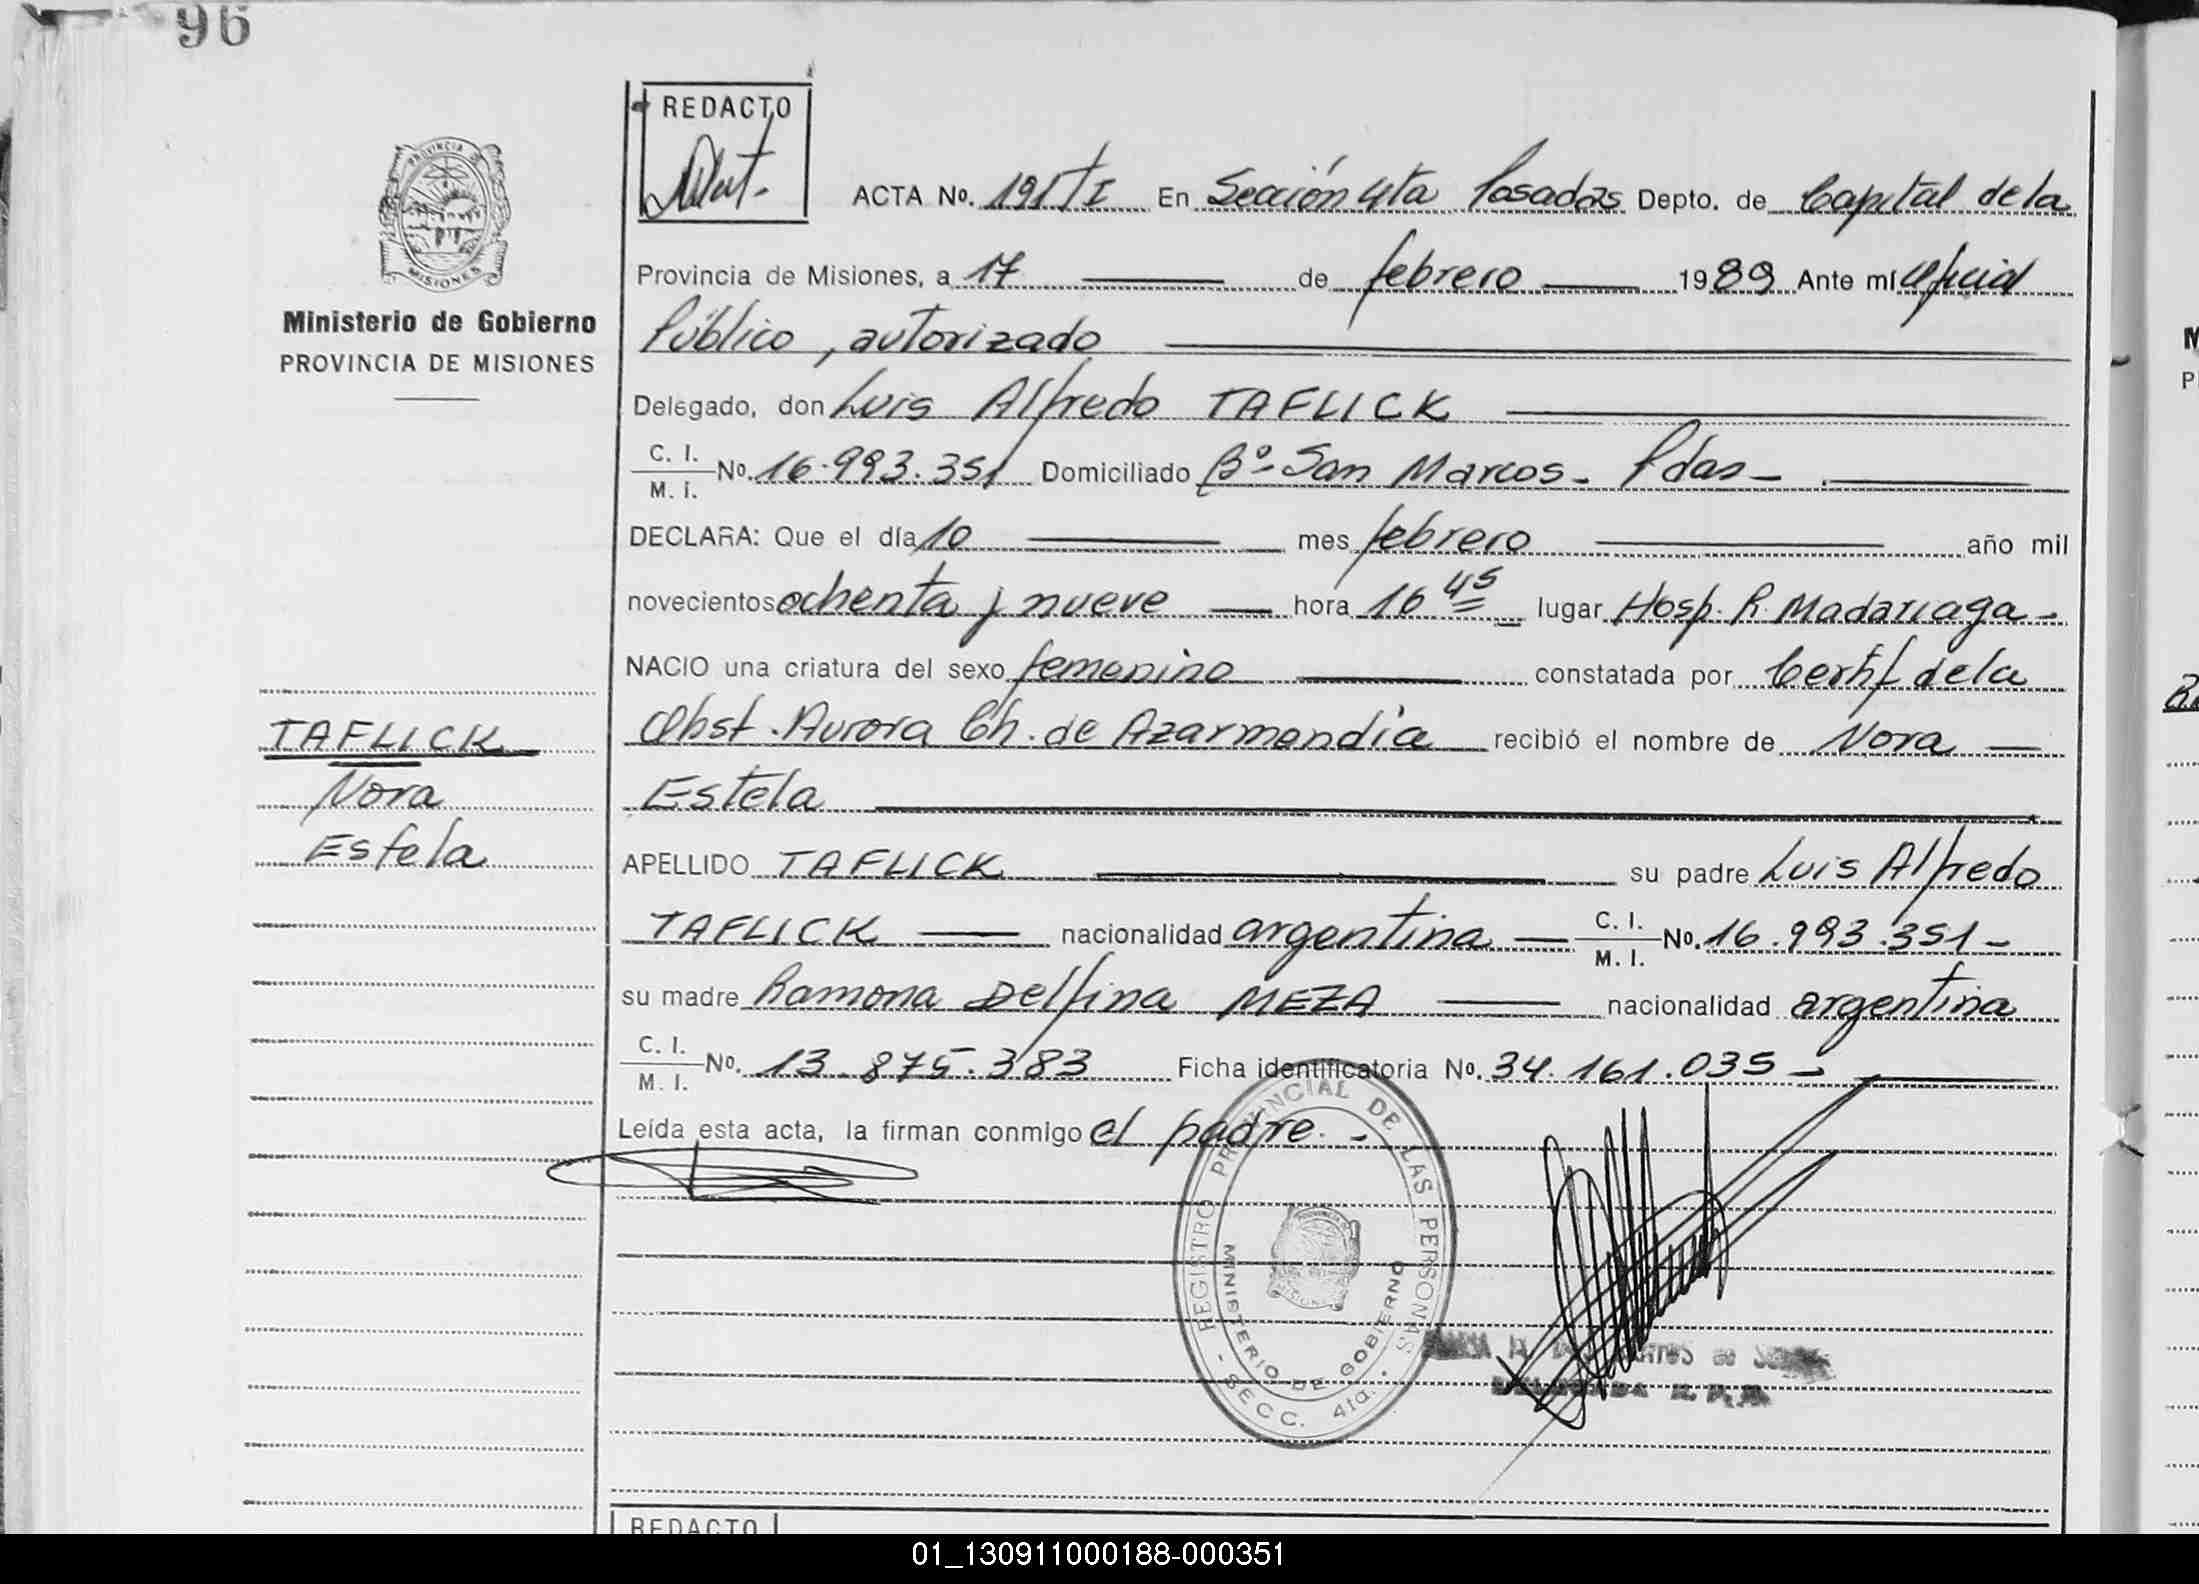 96
REDACTO
ACTA No. 191 T I En Sección 4ta Posadas Depto. de Capital de la
PROVINCIA DE MISIONES
Provincia de Misiones, a 17 de febrero 1989 Ante mí Oficial
Ministerio de Gobierno
Público, autorizado
PROVINCIA DE MISIONES
Delegado, don Luis Alfredo TAFLICK
C. I.
M. I. No. 16.993.351 Domiciliado Bº San Marcos - Pdas -
DECLARA: Que el día 10 mes febrero año mil
novecientos ochenta y nueve hora 16 45 lugar Hosp. R. Madariaga -
NACIO una criatura del sexo femenino constatada por Certif de la
Obst. Aurora Ch. de Azarmendia recibió el nombre de Nora
TAFLICK
Nora
Estela
Estela
APELLIDO TAFLICK su padre Luis Alfredo
TAFLICK nacionalidad argentina C. I.
M. I. No. 16.993.351 -
su madre Ramona Delfina MEZA nacionalidad argentina
C. I.
M. I. No. 13.875.383 Ficha identificatoria No. 34.161.035 -
Leída esta acta, la firman conmigo el padre. -
REGISTRO PROVINCIAL DE LAS PERSONAS
MINISTERIO DE GOBIERNO
- SECC. 4ta. -
REDACTO
01_130911000188-000351